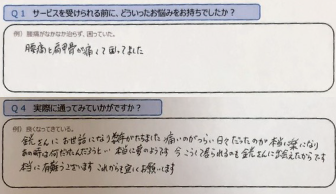 Q1 サービスを受けられる前に、どういったお悩みをお持ちでしたか?
例) 腰痛がなかなか治らず、困っていた。
腰痛と肩甲骨が痛くて困ってました
Q4 実際に通ってみていかがですか?
例) 良くなってきている。
さんにお世話になり数年がたちました 痛いのがつらい日々だったのが本当に楽になり
あの時は何だったんだろうと… 本当に夢のようです 今こうして居られるのも さんに出会えたからです
本当に有難うございます これからも宜しくお願いします